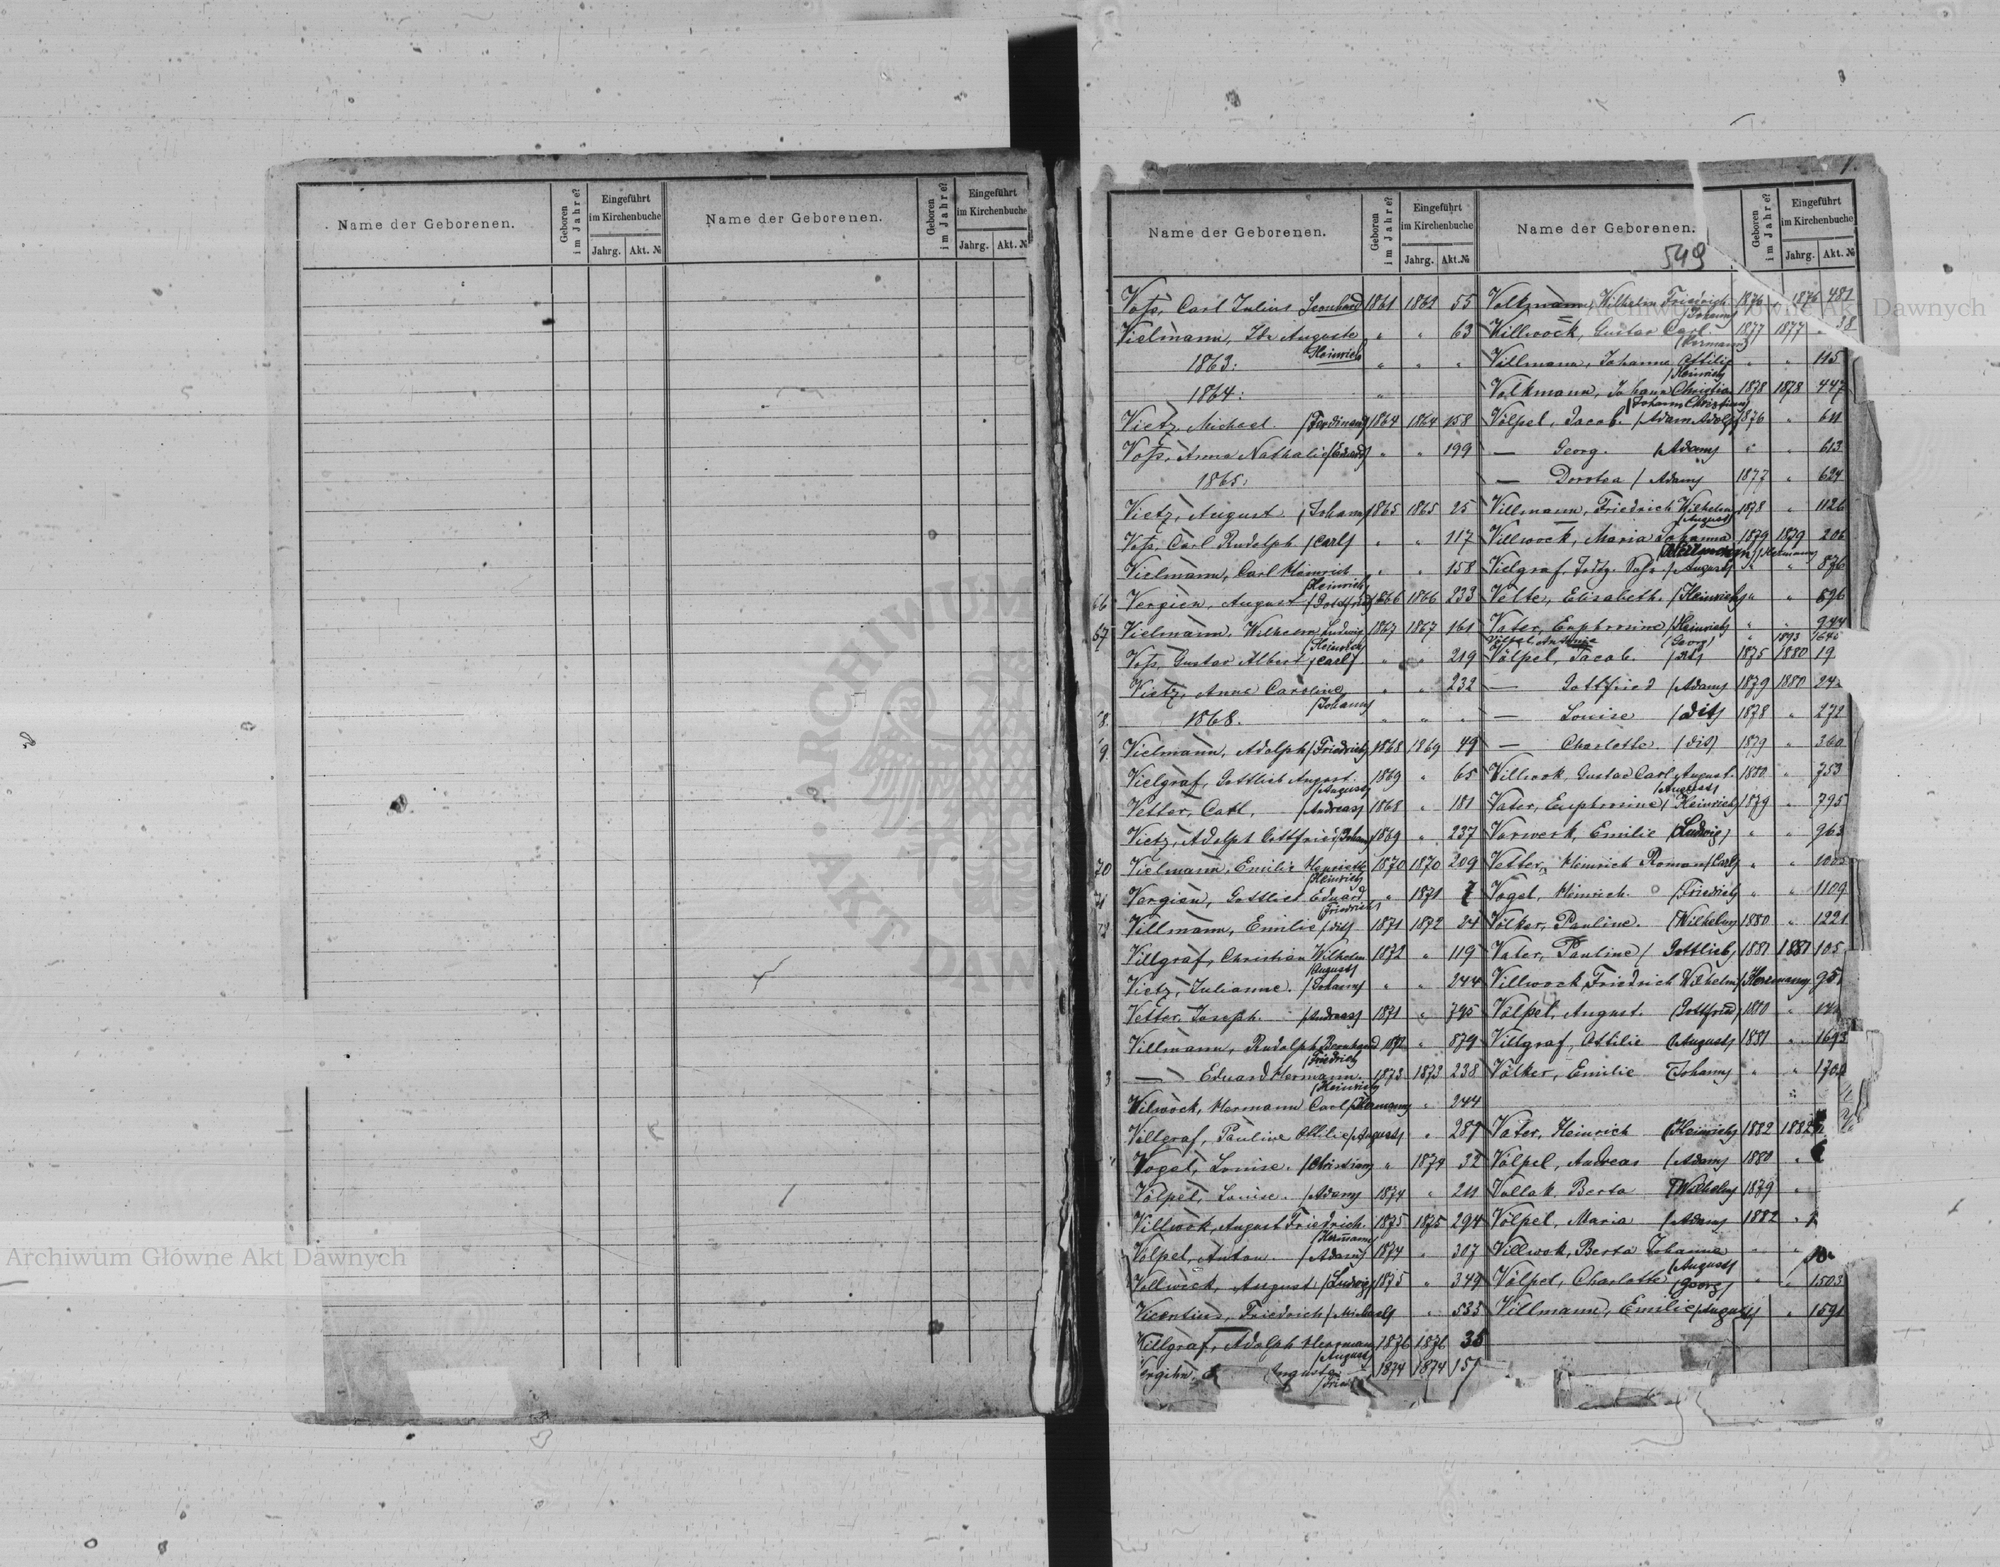 Name der Geborenen.
Geboren im Jahre?
Eingeführt im Kirchenbuche
Jahrg. Akt. №
Name der Geborenen.
Geboren im Jahre?
Eingeführt im Kirchenbuche
Jahrg. Akt. №
Name der Geborenen.
Geboren im Jahre?
Eingeführt im Kirchenbuche
Jahrg. Akt. №
Voſs, Carl Julius Leonhard 1861 55
Vielmann, Ida Auguste " " 63
/Heinrich/
1863: " " "
1864: "
Vietz, Michael. /Ferdinand/ 1864 1864 158
Voſs, Anna Nathalie " " 199
1865:
Vietz, August. /Johann/ 1865 1865 25
Voſs, Carl Rudolph /Carl/ " " 117
Vielmann, Carl Heinrich " " 158
/Heinrich/
66 Vergien, August /Gottfried/ 1866 1866 233
67 Vielmann, Wilhelm Ludwig 1867 1867 161
/Heinrich/
Voſs, Gustav Albert /Carl/ " " 219
Vietz, Anna Caroline " " 232
/Johann/
1868. " " "
Vielmann, Adolph /Friedrich/ 1868 1869 49
Vielgraf, Gottlieb August. 1869 " 65
/August/
Vetter, Carl, /Andreas/ 1868 " 181
Vietz, Adolph Gottfried /Johann/ 1869 " 237
70 Vielmann, Emilie Henriette 1870 1870 209
/Heinrich/
71 Vergien, Gottlieb Eduard " 1871 7
/Friedrich/
Villmann, Emilie 1871 1872 24
Villgraf, Christian Wilhelm 1872 " 119
/August/
Vietz, Julianne. /Johann/ " " 244
Vetter, Joseph. /Andreas/ 1871 " 795
Villmann, Rudolph Bernhard " 879
/Friedrich/
3 — Eduard Hermann. 1873 1873 238
/Heinrich/
Vilwock, Hermann Carl /Hermann/ " 244
Villgraf, Pauline Ottilie /August/ " 287
Vogel, Louise. /Christian/ " 1874 32
Völpel, Louise. /Adam/ 1874 " 211
Villwok, August Friedrich. 1875 1875 294
/Hermann/
Völpel, Anton. /Adam/ 1874 " 307
Vollweck, August /Ludwig/ 1875 " 349
Vicentius, Friedrich /Michael/ " 533
Villgraf, Adolph Hermann 1876 1876 35
/August/
Auguste 1874 1874 151
Name der Geborenen.
549
Geboren im Jahre?
Eingeführt im Kirchenbuche
Jahrg. Akt. №
Volkmann, Wilhelm Friedrich 1876 1876 481
/Johann/
Willwock, Gustav Carl. 1877 1877 38
/Hermann/
Villmann, Johanna Ottilie " " 115
/Heinrich/
Volkmann, Johann Christian 1878 1878 447
/Johann Christian/
Völpel, Jacob. /Adam Adolf/ 1876 " 611
— Georg. /Adam/ " " 613
— Dorotea /Adam/ 1877 " 624
Villmann, Friedrich Wilhelm 1878 " 1126
/August/
Villwock, Maria Johanna 1879 1879 206
/Hermann/
Vielgraf, /August/ " " 876
Velte, Elisabeth. /Heinrich/ " " 896
Vater, Euphrosine /Heinrich/ " " 944
/Georg/ " 1893
Völpel, Jacob. 1875 1880 19
— Gottfried /Adam/ 1879 1880
— Louise /dit/ 1878 " 272
— Charlotte. /dit/ 1879 " 360
Villwok, Gustav Carl August. 1880 " 753
/August/
Vater, Euphrosine /Heinrich/ 1879 " 795
Vorwerk, Emilie /Ludwig/ " " 963
Vetter, Heinrich Roman /Carl/ " "
Vogel, Heinrich. /Friedrich/ " " 1109
Völker, Pauline. /Wilhelm/ 1880 " 1221
Vater, Pauline / Gottlieb/ 1881 1881 105
Villwock Friedrich Wilhelm /Hermann/
Völpel, August. /Gottfried/ 1880 "
Villgraf, Ottilie /August/ 1881 " 1693
Völker, Emilie /Johann/ " "
Vater, Heinrich /Heinrich/ 1882 1882
Völpel, Andreas /Adam/ 1880 "
Vollak, Berta /Wilhelm/ 1879 "
Völpel, Maria /Adam/ 1882 "
Villwok, Berta Johanna " "
/August/
Völpel, Charlotte /Georg/ " " 1503
Villmann, Emilie /August/ " 1591
ARCHIWUM
Archiwum Główne Akt Dawnych
Archiwum Główne Akt Dawnych